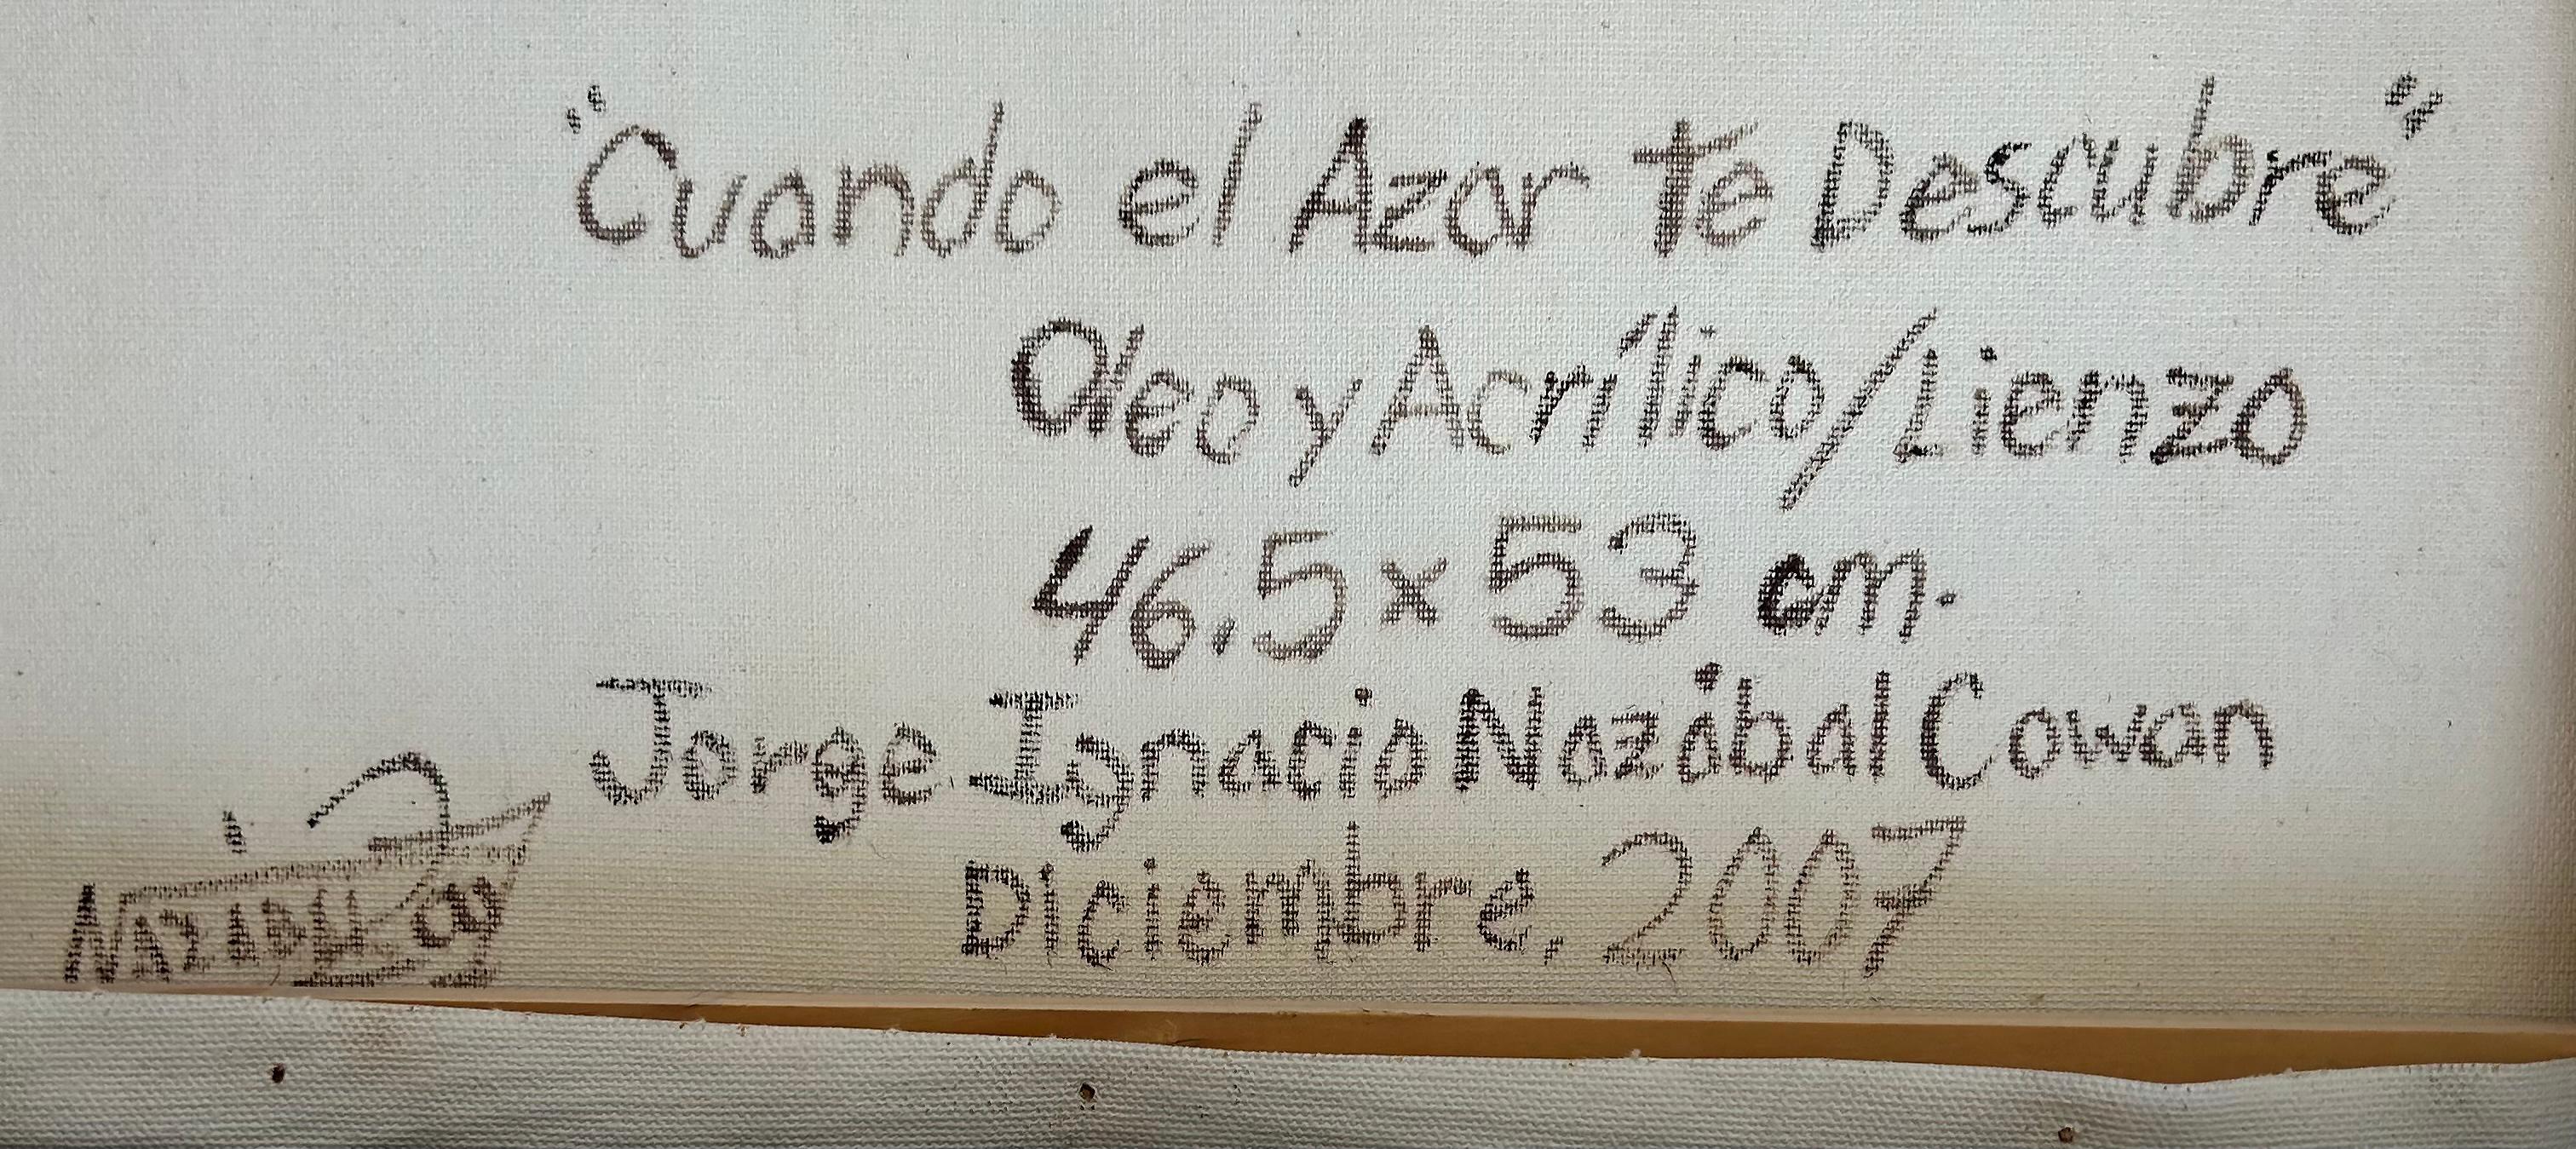 "Cuando el Azar te Descubre"
Oleo y Acrílico/Lienzo
46.5 x 53 cm.
Jorge Ignacio Nazibal Cowan
Diciembre, 2007